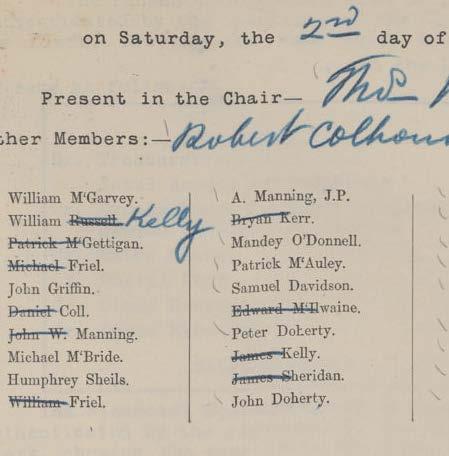 on Saturday, the 2nd day of
Present in the Chair— Thos
ther Members:— Robert Colhoun
William M'Garvey.
William Russell. Kelly
Patrick M'Gettigan.
Michael Friel.
John Griffin.
Daniel Coll.
John W. Manning.
Michael M'Bride.
Humphrey Sheils.
William Friel.
A. Manning, J.P.
Bryan Kerr.
Mandey O'Donnell.
Patrick M'Auley.
Samuel Davidson.
Edward M'Ilwaine.
Peter Doherty.
James Kelly.
James Sheridan.
John Doherty.